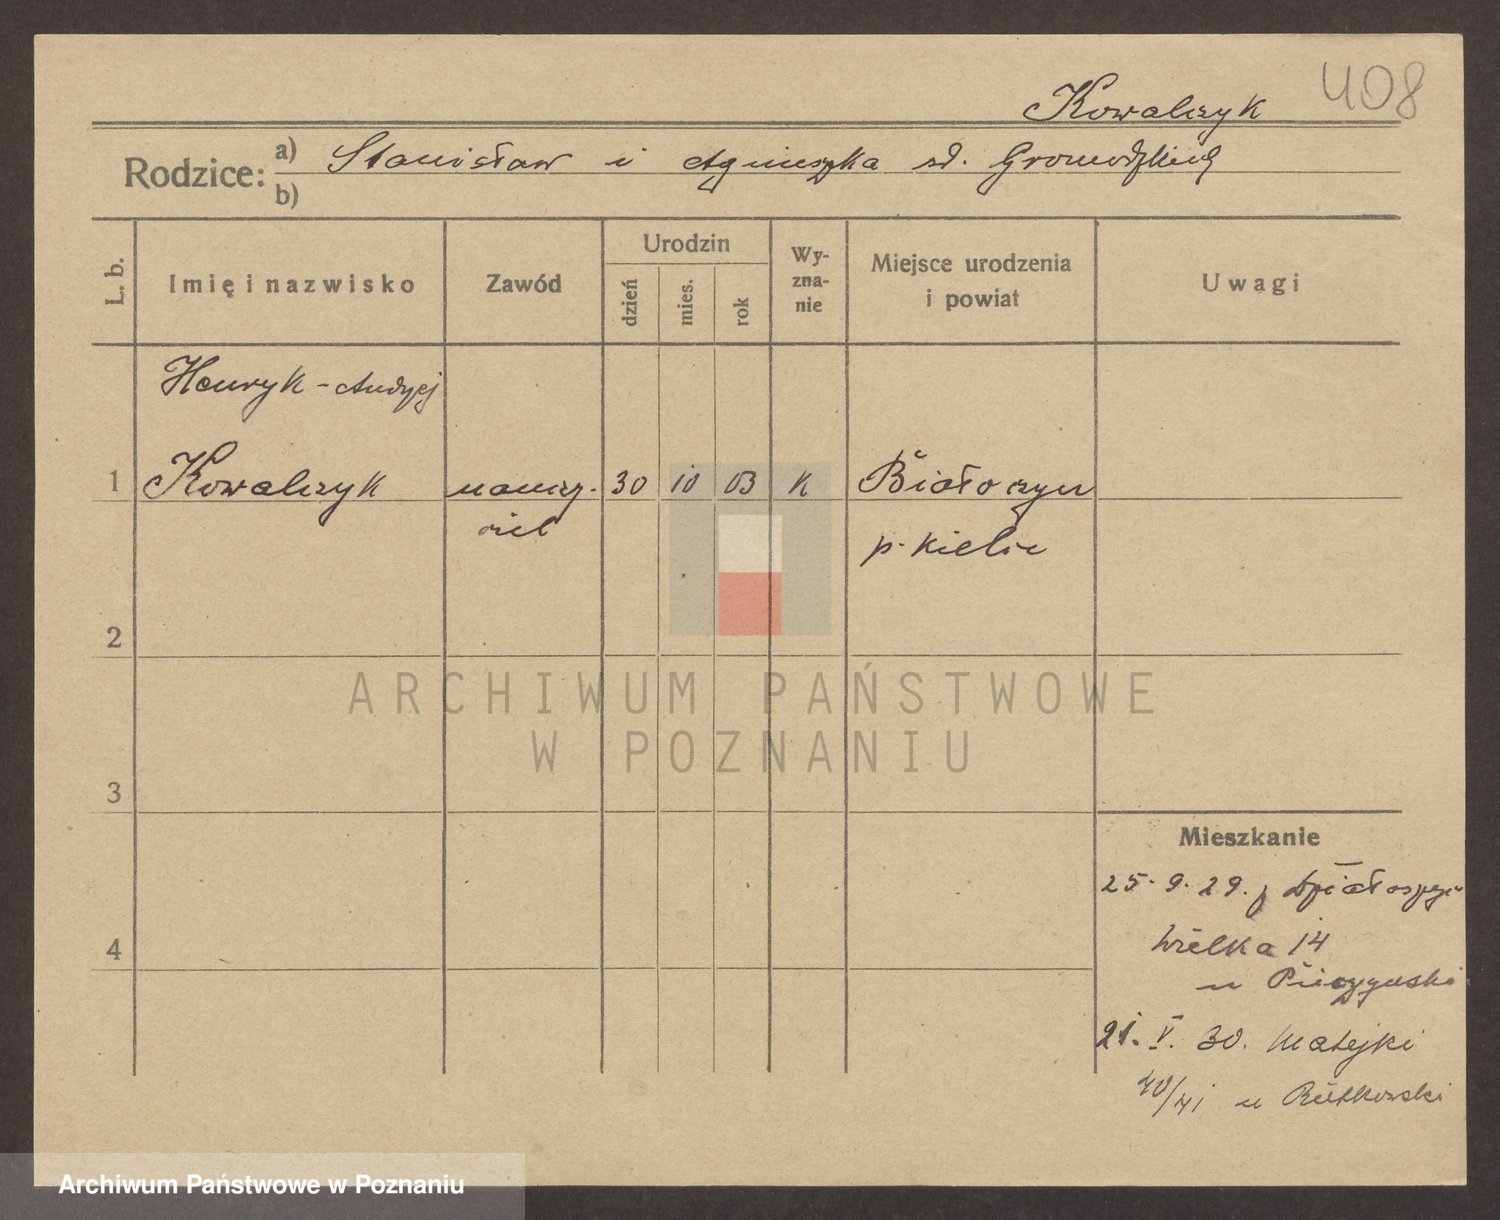 408
Kowalczyk
Rodzice: a) Stanisław i Agnieszka zd.
b)
L. b. Imię i nazwisko Zawód Urodzin dzień mies. rok Wy- zna- nie Miejsce urodzenia i powiat Uwagi
Henryk - Andrzej
1 Kowalczyk nauczy- 30 10 03 K
ciel p. Kielce
2
ARCHIWUM PAŃSTWOWE
W POZNANIU
3
Mieszkanie
25. 9. 29. z
4 Wielka 14
u
21. V. 30. Matejki
40/41 u Rutkowski
Archiwum Państwowe w Poznaniu